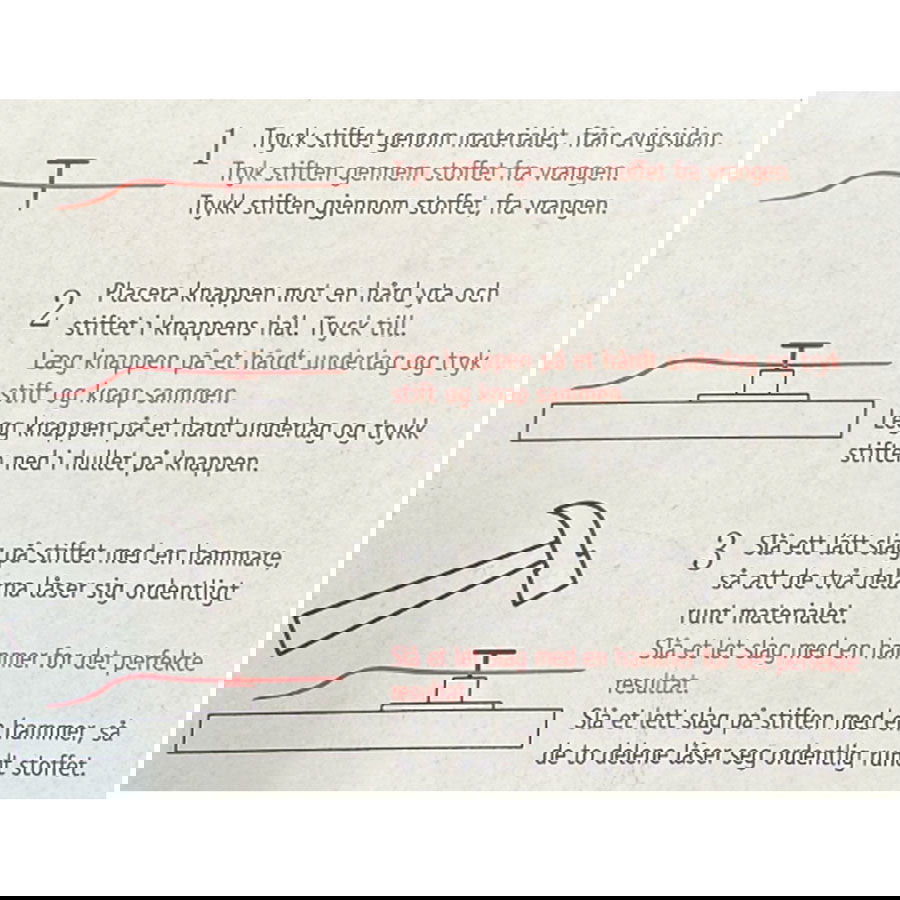 1 Tryck stiftet genom materialet, från avigsidan.
Tryk stiften gennem stoffet fra vrangen.
Trykk stiften gjennom stoffet, fra vrangen.
2 Placera knappen mot en hård yta och
stiftet i knappens hål. Tryck till.
Læg knappen på et hårdt underlag og tryk
stift og knap sammen.
Legg knappen på et hardt underlag og trykk
stiften ned i hullet på knappen.
3 Slå ett lätt slag på stiftet med en hammare,
så att de två delarna låser sig ordentligt
runt materialet.
Slå et let slag med en hammer for det perfekte
resultat.
Slå et lett slag på stiften med en hammer, så
de to delene låser seg ordentlig rundt stoffet.